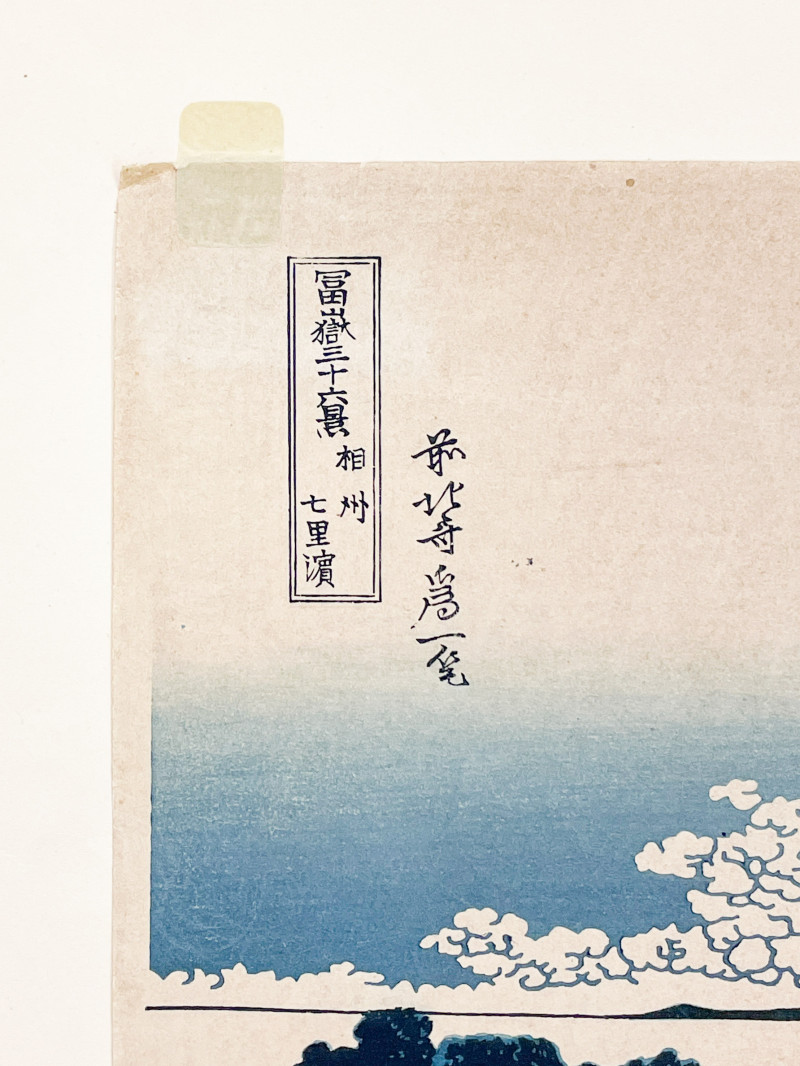 冨嶽三十六景
相州
七里濵
前北斎為一笔